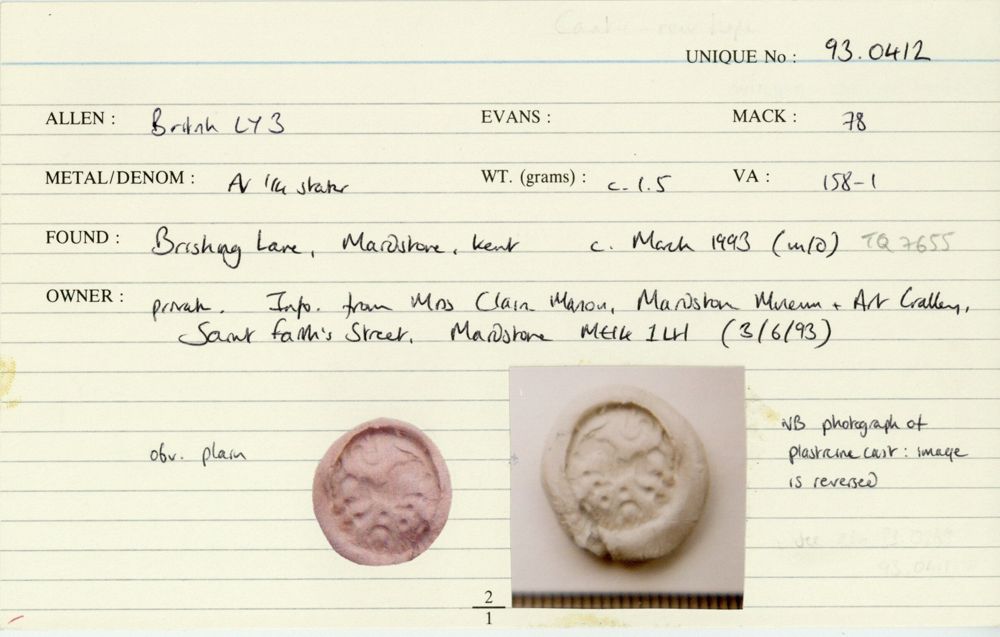 UNIQUE No : 93.0412
ALLEN : British LY3 EVANS : MACK : 78
METAL/DENOM : AV 1/4 stater WT. (grams) : c. 1.5 VA : 158-1
FOUND : Brishing Lane, Maidstone, Kent c. March 1993 (m/d) TQ 7655
OWNER : private. Info. from Mrs Clair Mason, Maidstone Museum + Art Gallery,
Saint Faith's Street, Maidstone ME14 1LH (3/6/93)
obv. plain
NB photograph of
plasticine cast : image
is reversed
2
1